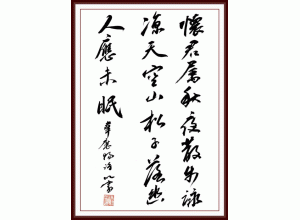 懷君屬秋夜散步詠
涼天空山松子落幽
人應未眠
韋應物詩